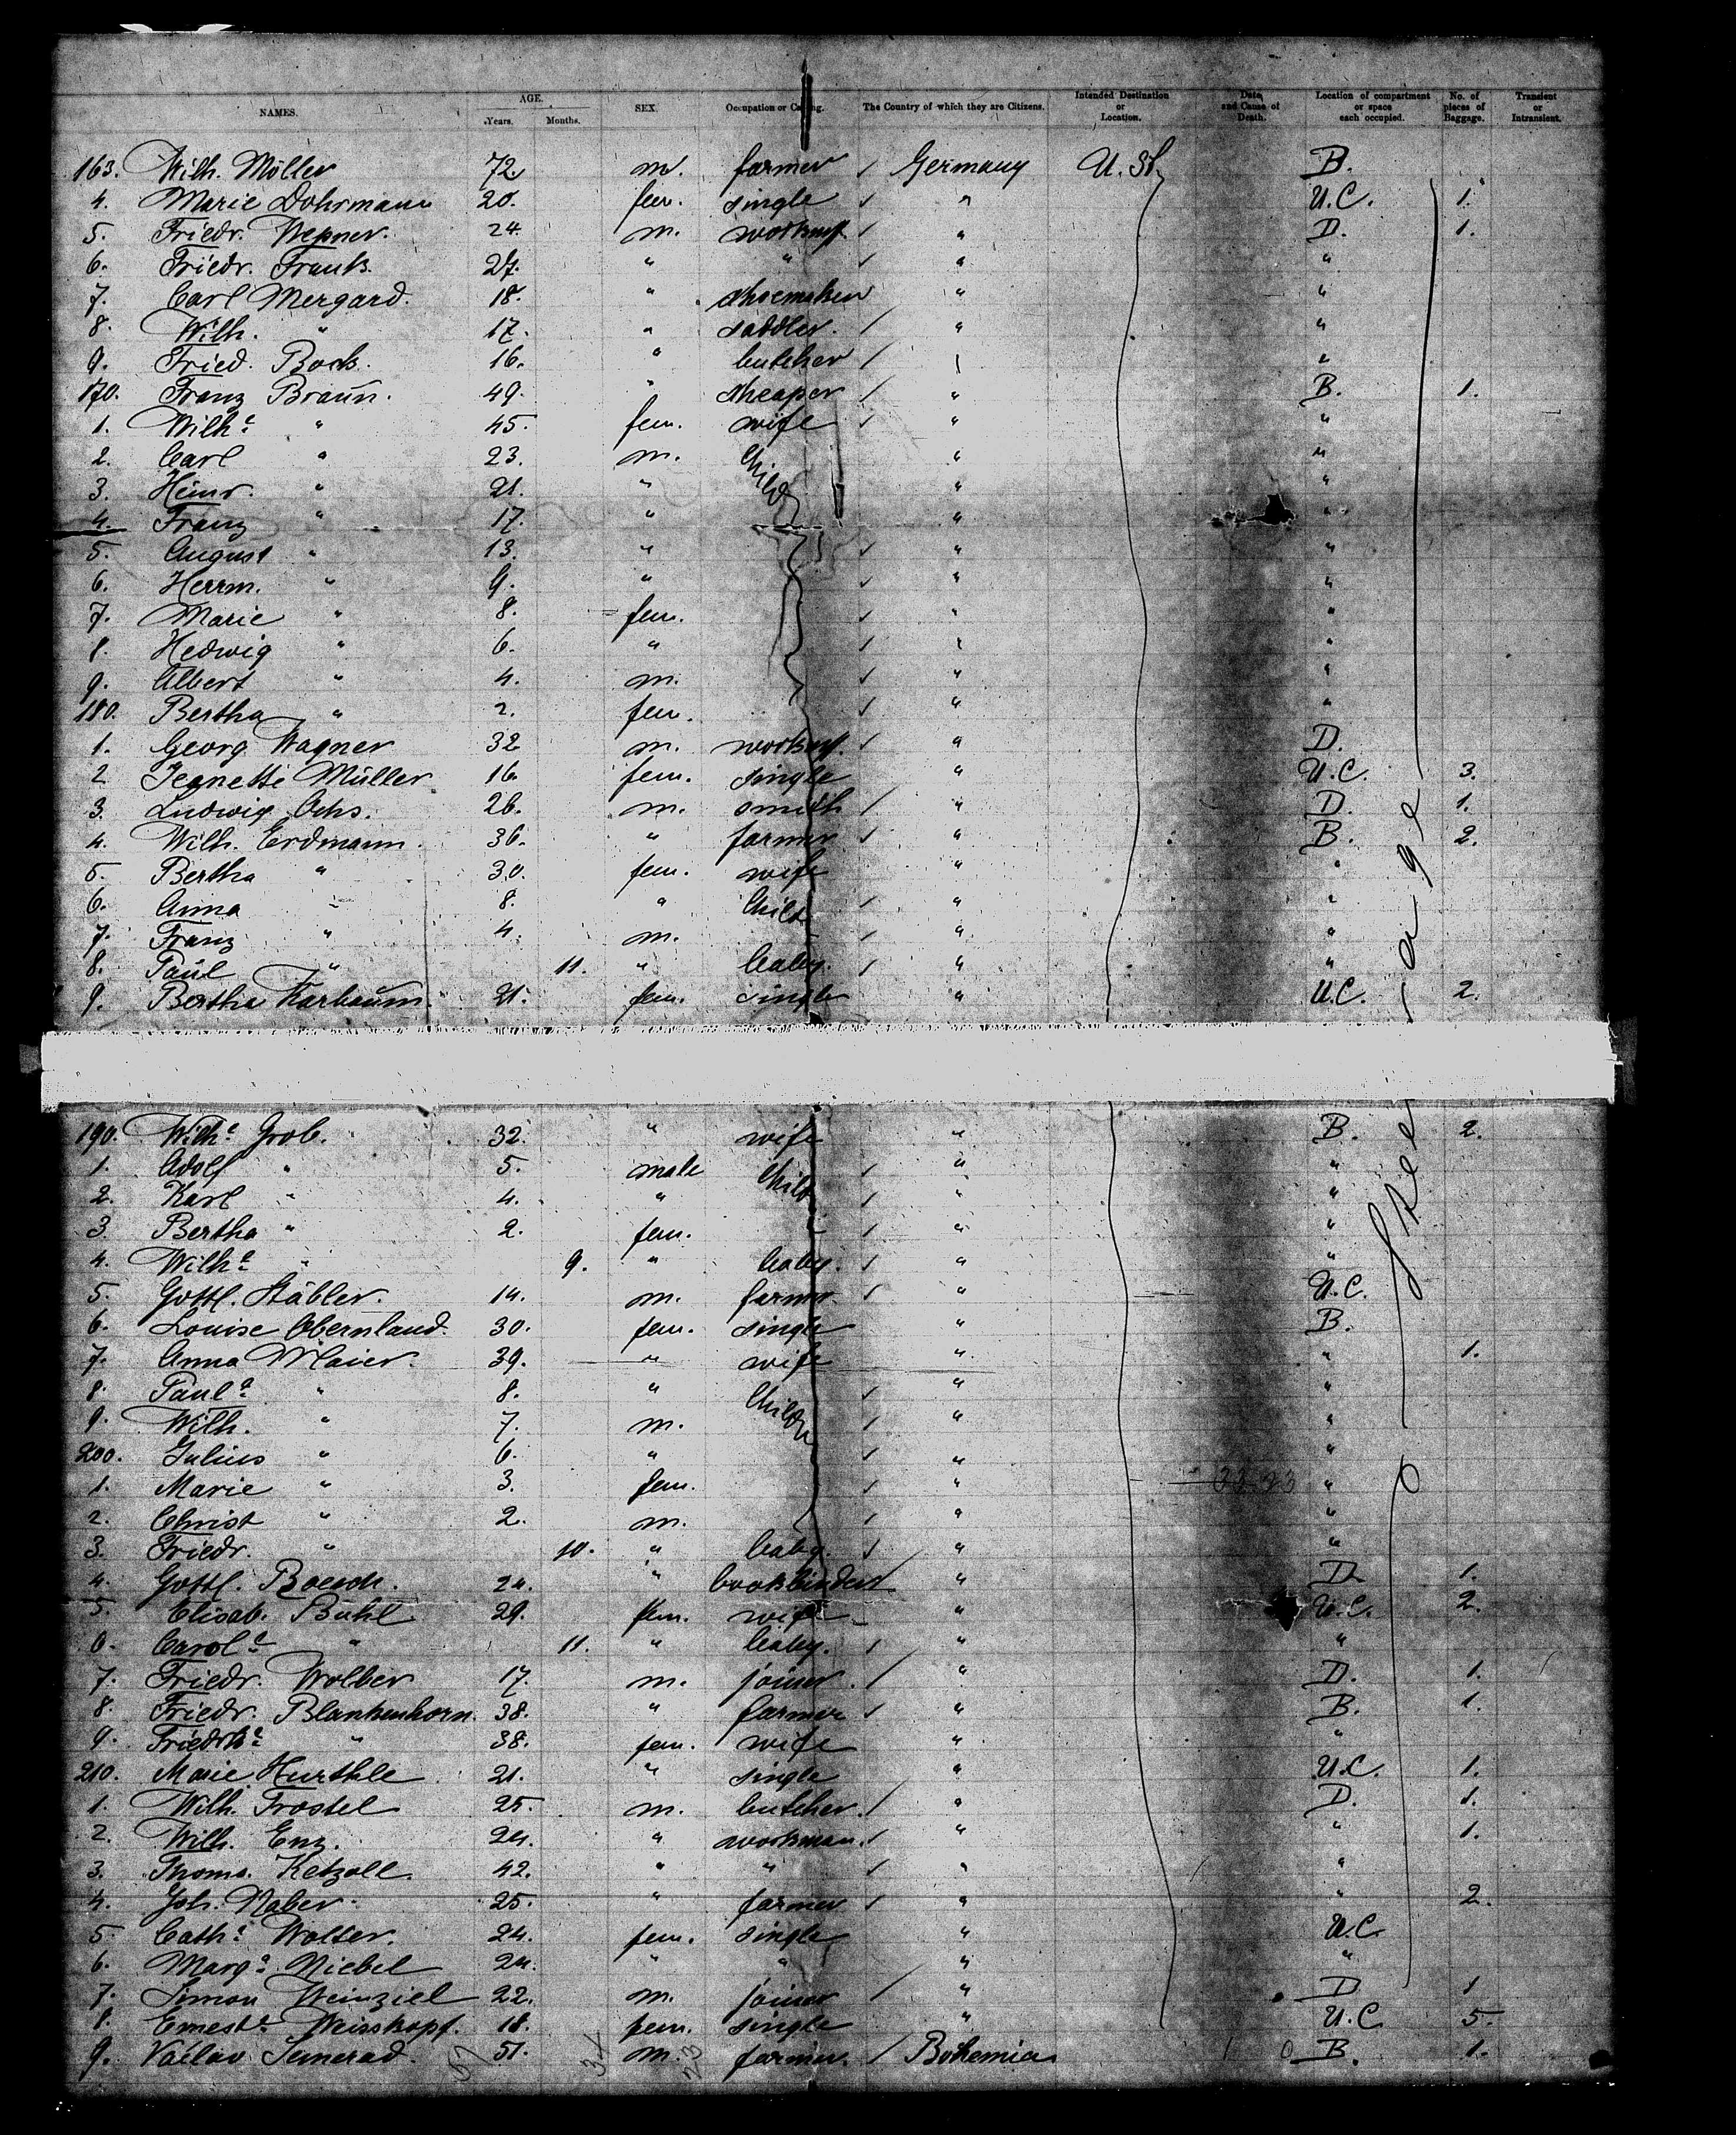 NAMES. AGE. Years. Months. SEX. Occupation or Calling. The Country of which they are Citizens. Intended Destination or Location. Date and Cause of Death. Location of compartment or space each occupied. No. of pieces of Baggage. Transient or Intransient.
163. Wilh. Möller 72. m. farmer / Germany U. St. B.
4. Marie Dohrmann 20. fem. single / " U.C. 1.
5. Friedr. Wepner. 24. m. workm / " D. 1.
6. Friedr. Frank. 27. " " / " "
7. Carl Mergard. 18. " shoemaker " "
8. Wilh. " 17. " saddler. / " "
9. Fried. Bock. 16. " butcher / " "
170. Franz Braun. 49. " / " B. 1.
1. Wilhe " 45. fem. wife / " "
2. Carl " 23. m. Child " "
3. Heinr. " 21. " " "
4. Franz " 17. " " "
5. August " 13. " / " "
6. Herrm. " 9. " / " "
7. Marie " 8. fem. / " "
8. Hedwig " 6. " / " "
9. Albert " 4. m. / " "
180. Bertha " 2. fem. / " "
1. Georg Wagner 32 m. workm. / " D.
2 Jeanette Müller 16. fem. single " U.C. 3.
3. Ludwig Ochs. 26. m. smith / " D. 1.
4. Wilh. Erdmann. 36. " farmer / " B. 2.
5. Bertha " 30. fem. wife " "
6. Anna " 8. " Child / " "
7. Franz " 4. m. / " "
8. Paul " 11. " baby. / " "
9. Bertha Karbaum. 21. fem. single " U.C. 2.
190. Wilhe Grob. 32. " wife " B. 2.
1. Adolf " 5. male Child / " "
2. Karl " 4. " / " "
3. Bertha " 2. fem. / " "
4. Wilhe " 9. " baby. / " "
5. Gottl. Stäbler. 14. m. farmer / " U.C.
6. Louise Obernland. 30. fem. single " B.
7. Anna Maier. 39. " wife " " 1.
8. Paula " 8. " Child / " "
9. Wilh. " 7. m. / " "
200. Julius " 6. " / " "
1. Marie " 3. fem. / " "
2. Christ " 2. m. / " "
3. Friedr. " 10. " baby. / " "
4. Gottl. Boesch. 24. " bookbinder " D. 1.
5. Elisab. Buhl 29. fem. wife " U.C. 2.
6. Carole " 11. " baby. / " "
7. Friedr. Wolber 17. m. joiner. / " D. 1.
8. Friedr. Blankenhorn. 38. " farmer / " B. 1.
9. Friedrke " 38. fem. wife " "
210. Marie Hurthle 21. " single " U.C. 1.
1. Wilh. Trostel 25. m. butcher. / " D. 1.
2. Wilh. Enz. 24. " workman. / " " 1.
3. Thoms. Ketzoll. 42. " " / " "
4. Joh. Naber. 25. " farmer / " " 2.
5. Cathe Wolter. 24. fem. single " U.C.
6. Marga Niebel 24. " " " "
7. Simon Weinziel 22. m. joiner / " D 1
8. Erneste Weisskopf. 18. fem. single " U.C. 5.
9. Vaclav Semerad. 51. m. farmer. / Bohemia B. 1.
Steerage